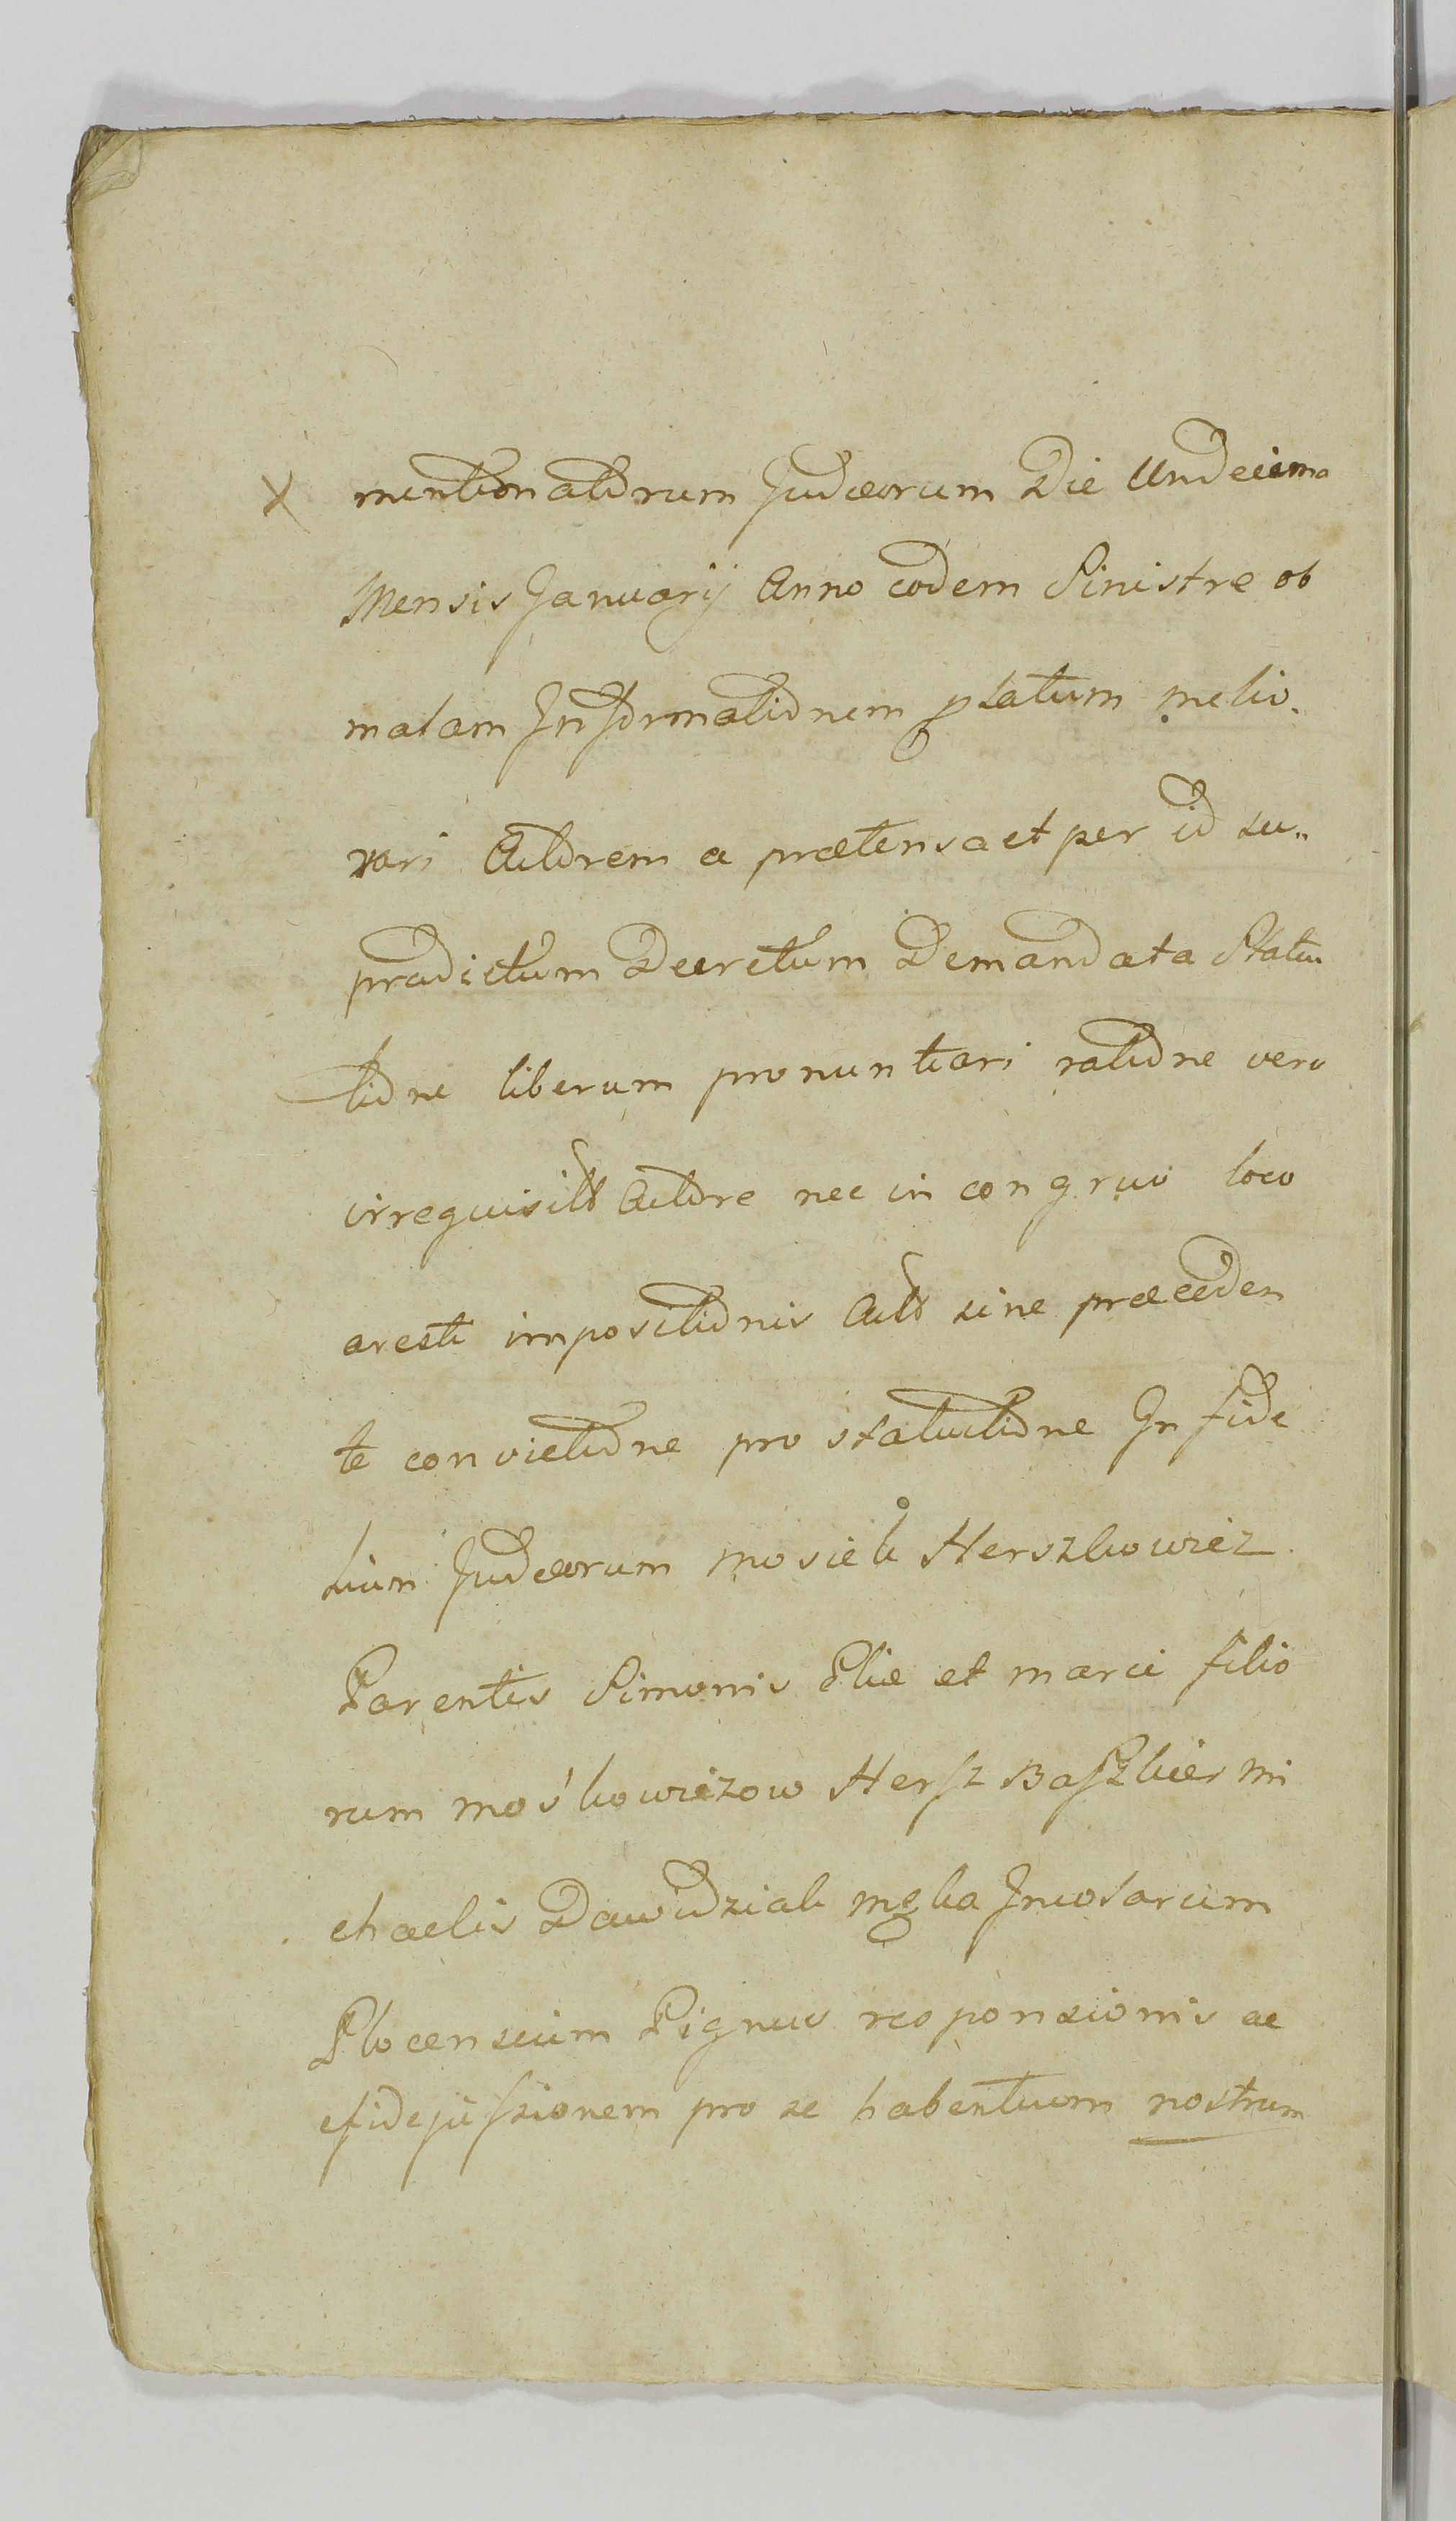 x mentionatorum Judæorum Die Undecima
Mensis Januarij Anno eodem Sinistre ob
malam Informationem platum melio.
rari Actorem a prætensa et per id su„
pradictum Decretum Demandata Statu
tione liberum pronuntiari ratione vero
irrequisito Actore nec in congruo loco
aresti impositionis Acto sine præceden
te convictione pro statuitione Infide
lium Judæorum Mosiek Herszkowicz
Parentis Simonis Eliæ et Marci filio
rum Mośkowiczow Hersz Baszkier Mi
chaelis Dawidziak Incolarum
Plocensium Pignus responsionis ac
efidejussionem pro se habentium nostrum